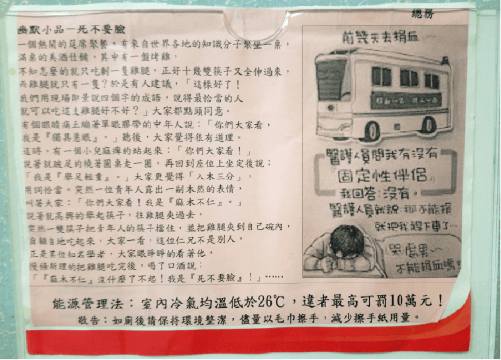 總務
幽默小品－死不要臉
一個熱鬧的筵席聚餐，有來自世界各地的知識分子聚坐一桌，
滿桌的美酒佳餚，其中有一盤烤雞，
不知怎麼的就只吃剩一隻雞腿，正好十幾雙筷子又全伸過來，
雞腿就只有一隻？於是有人建議，「這樣好了！
我們用現場即景說四個字的成語，說得最恰當的人
就可以吃這支雞腿好不好？」大家都點頭同意。
有個眼睛戴單眼膠帶的中年人說：「你們大家看，
我是『獨具慧眼』。」說後，大家覺得很有道理。
這時，有一個小兒麻痺的站起來：「你們大家看！」
說著就跛足的繞著圓桌走一圈，再回到座位上坐定後說：
「我是『舉足輕重』。」大家更覺得「入木三分」，
用詞恰當。突然一位青年人露出一副木然的表情，
叫著大家：「你們大家看！我是『麻木不仁』。」
說著就高興的舉起筷子，往雞腿夾過去，
突然一雙筷子把青年人的筷子擋住，並把雞腿夾到自己碗內，
自顧自地吃起來，大家一看，這位仁兄不是別人，
正是某位知名學者，大家眼睜睜的看著他，
慢條斯理的把雞腿吃完後，喝了口酒說：
「『麻木不仁』沒什麼了不起！我是『死不要臉』！」……
前幾天去捐血
醫護人員問我有沒有
固定性伴侶
我回答:沒有。
醫護人員就說:那不能捐
就把我趕下車了…
哭處男～
不能捐血嗎
能源管理法：室內冷氣均溫低於26℃，違者最高可罰10萬元！
敬告：如廁後請保持環境整潔，儘量以毛巾擦手，減少擦手紙用量。